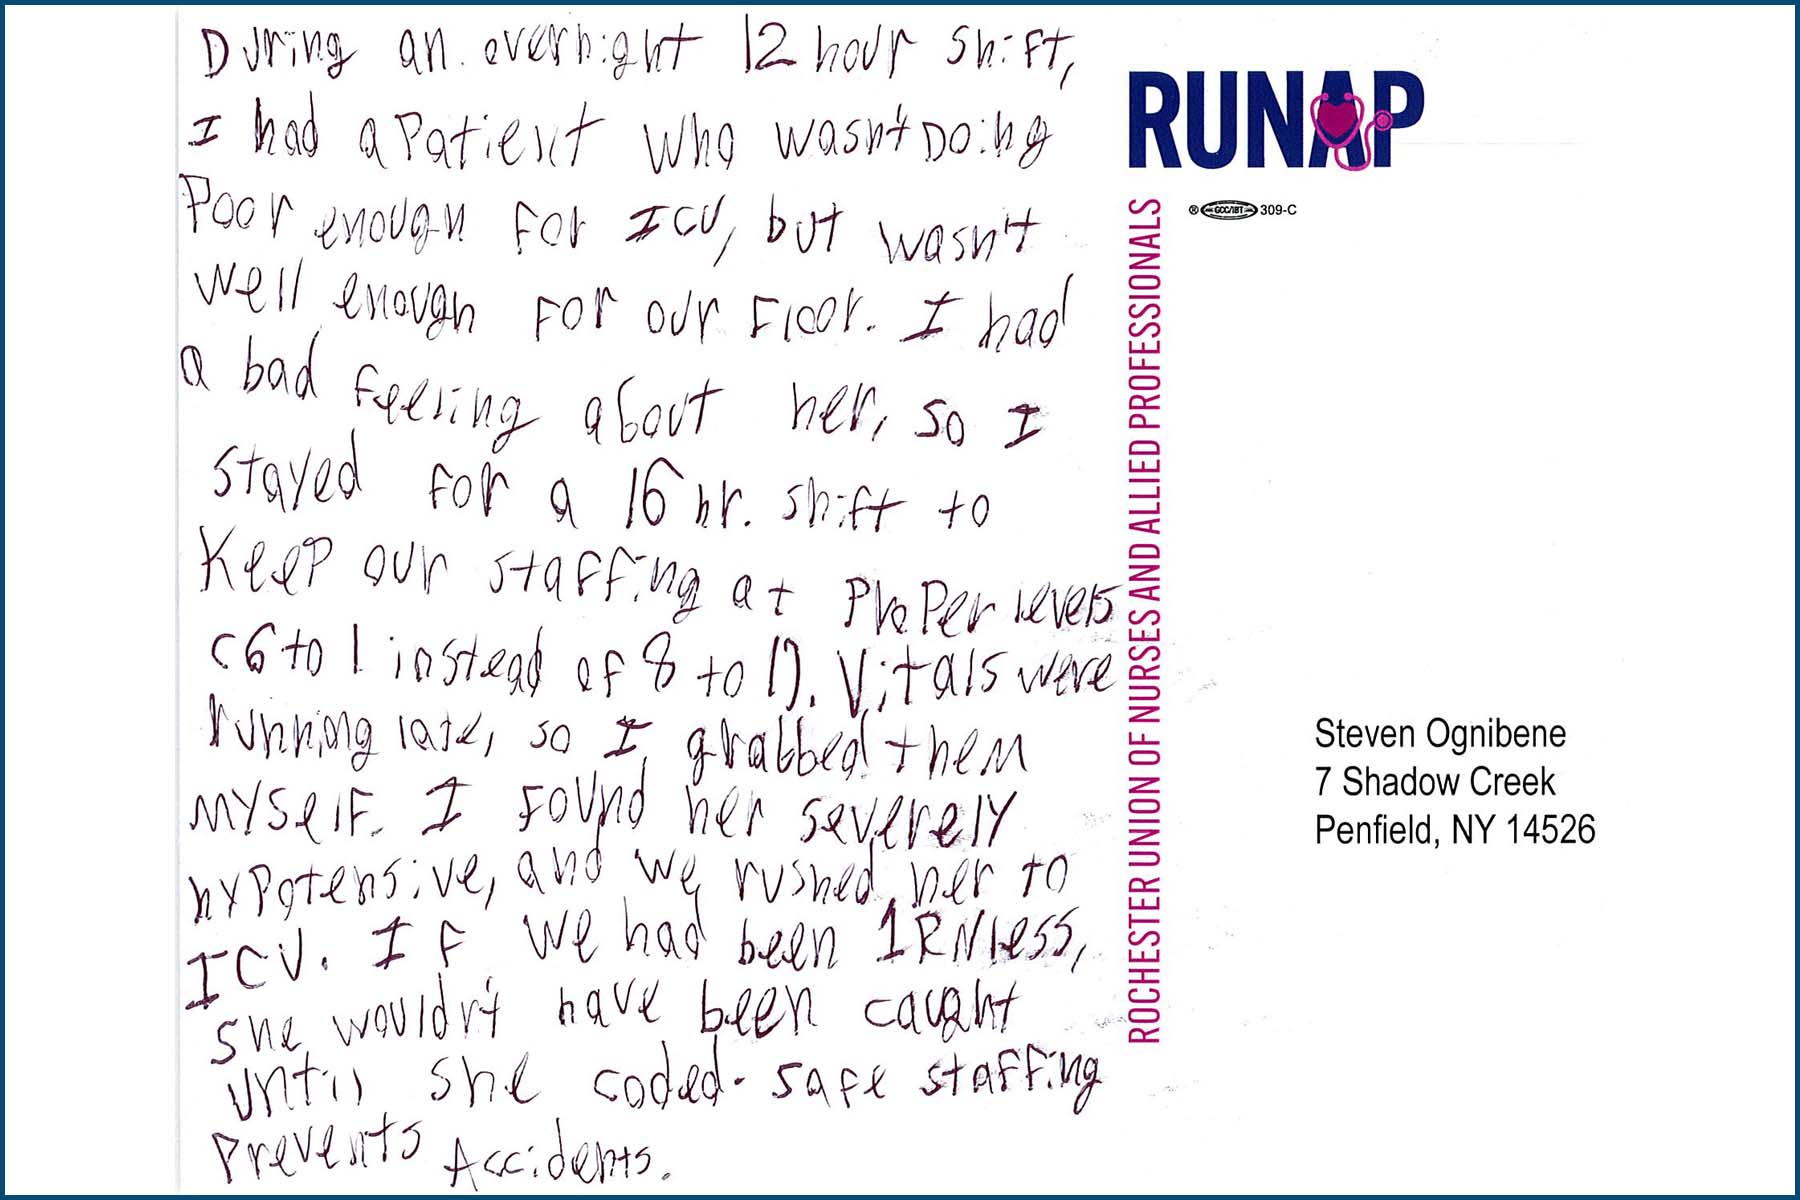 During an overnight 12 hour shift,
I had a patient who wasn't Doing
Poor enough for ICU, but wasn't
well enough for our floor. I had
a bad feeling about her, so I
stayed for a 16 hr. shift to
Keep our staffing at Proper levels
(6 to 1 instead of 8 to 1). Vitals were
running late, so I grabbed them
myself. I found her severely
hypotensive, and we rushed her to
ICU. If we had been 1 RN less,
she wouldn't have been caught
until she coded. Safe staffing
Prevents Accidents.
RUNAP
® GCC/IBT 309-C
ROCHESTER UNION OF NURSES AND ALLIED PROFESSIONALS
Steven Ognibene
7 Shadow Creek
Penfield, NY 14526